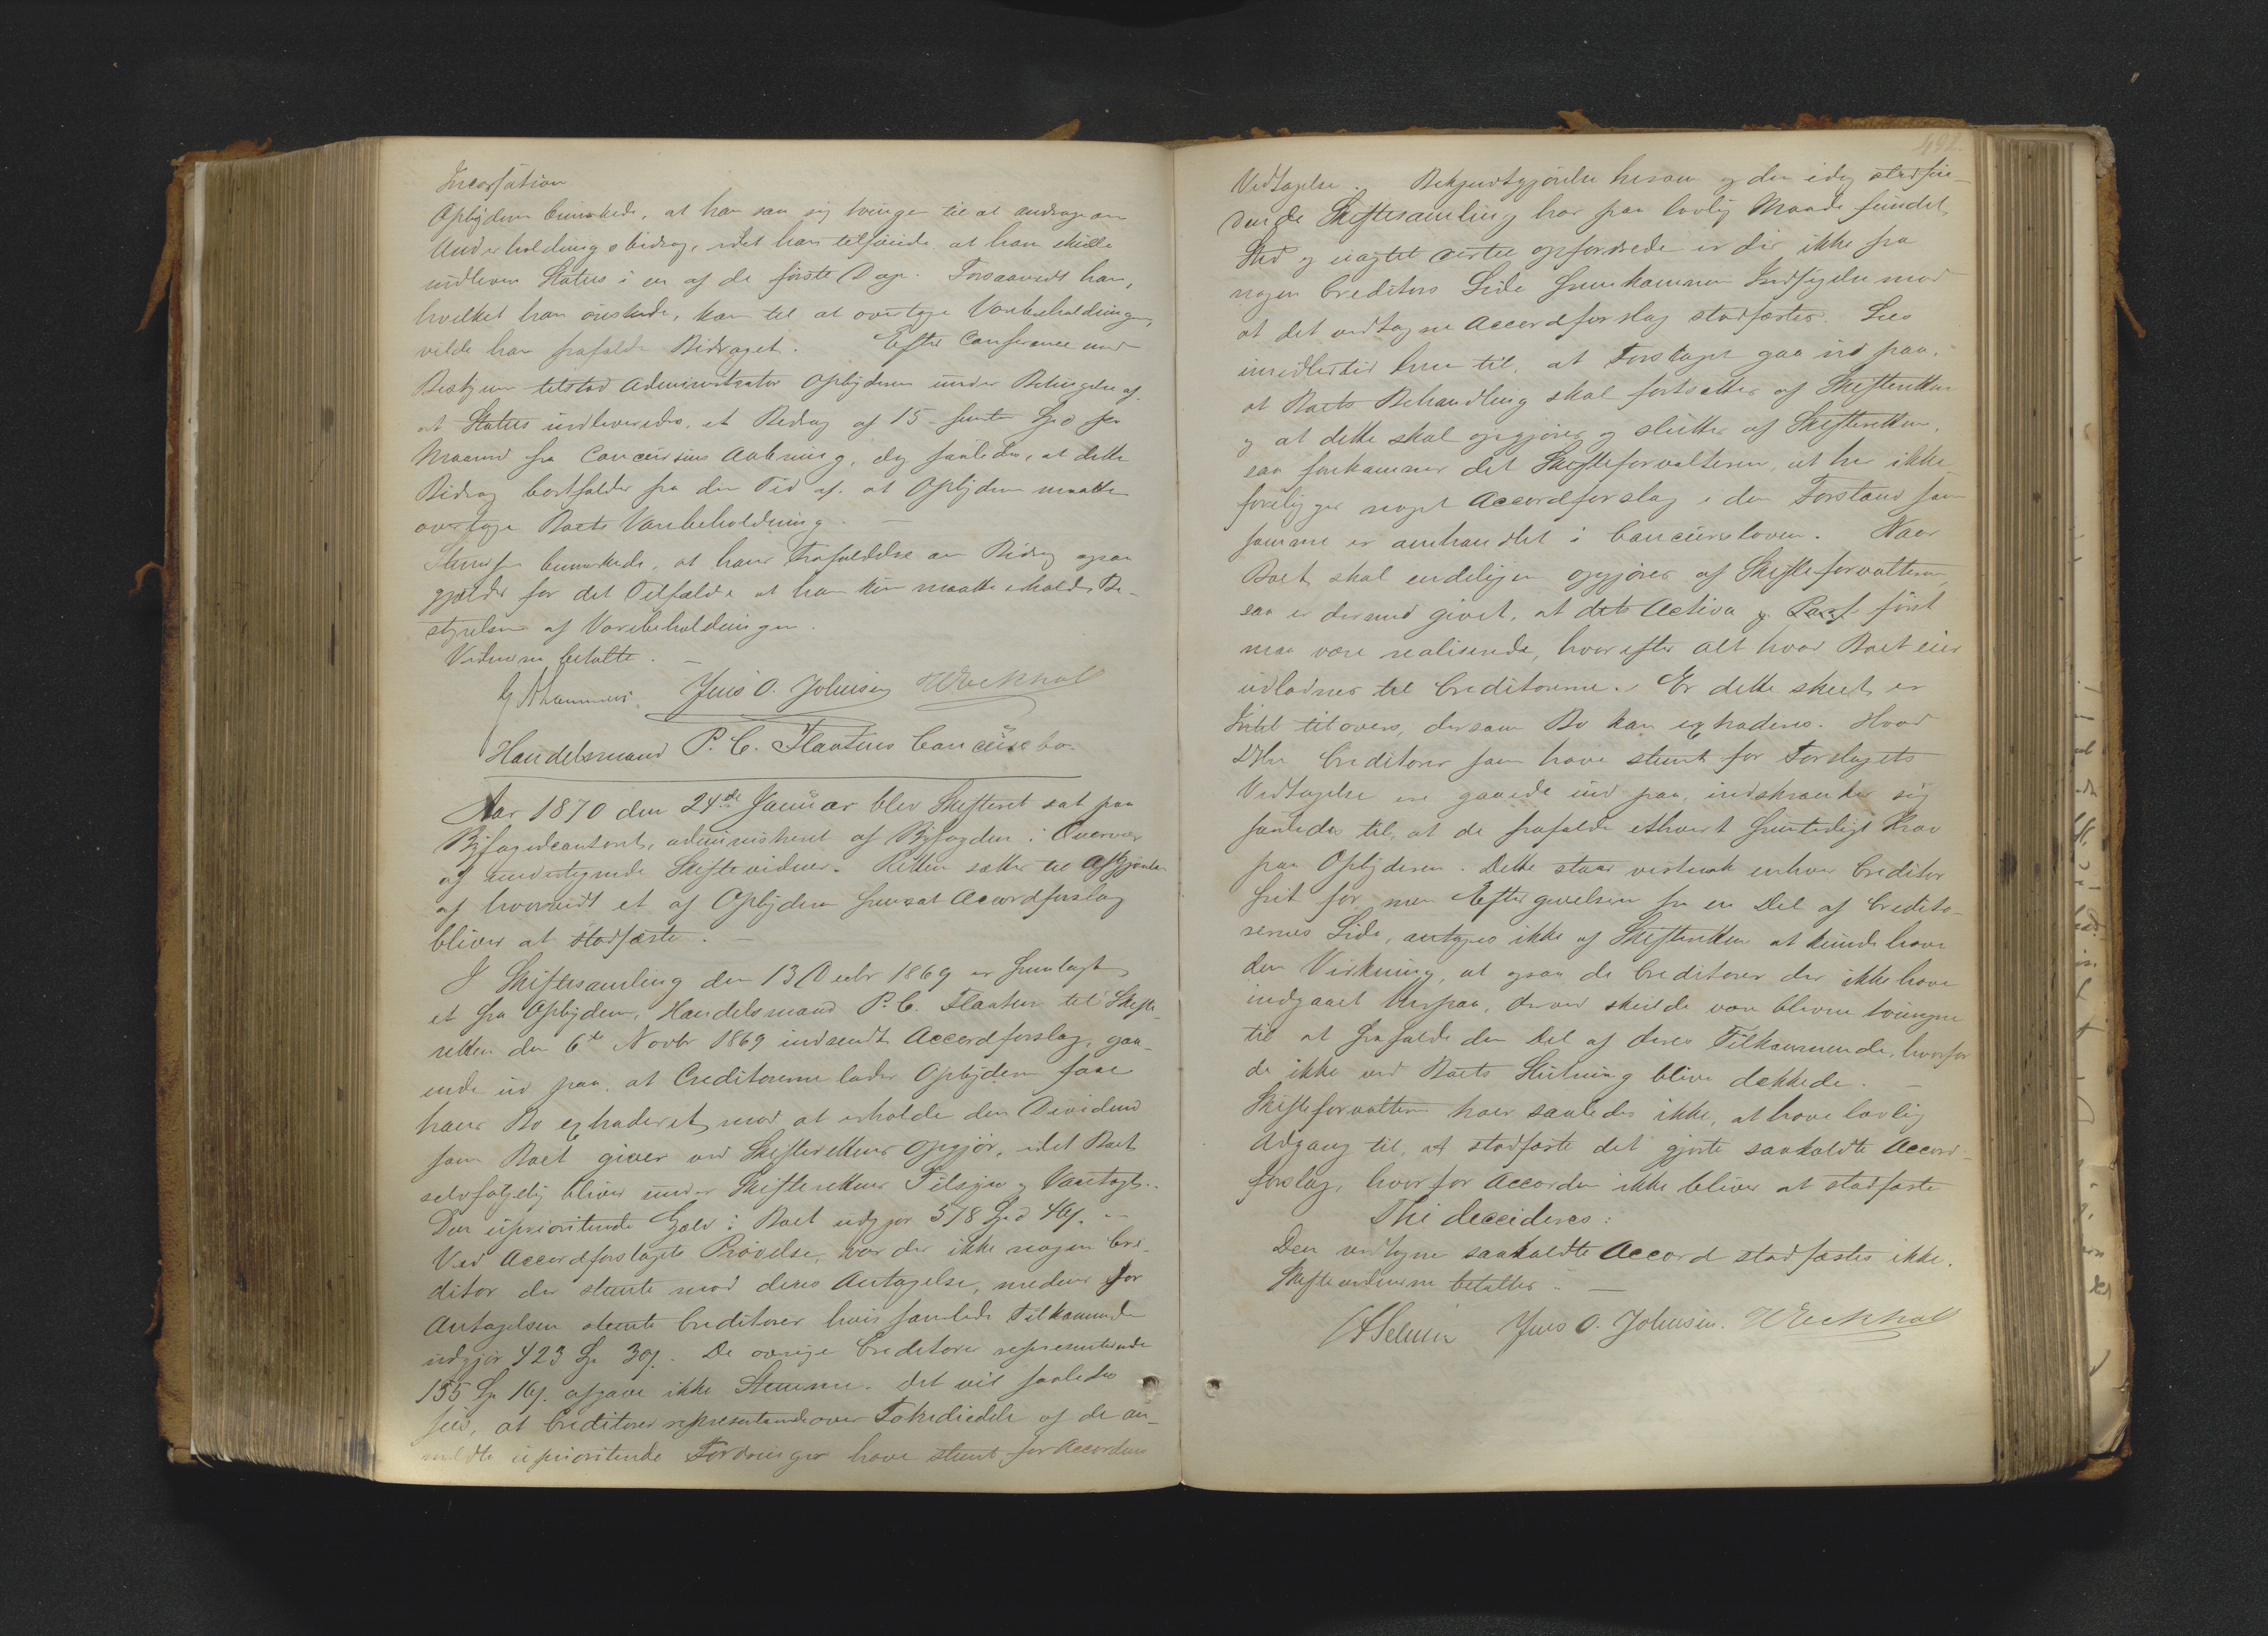 Incassation
Opbyderen bemærkede, at han saa sig tvungen til at andrage om
Underholdningsbidrag, idet han tilføiede at han skulde
indlevere Status i en af de første Dage. Forsaavidt han,
hvilket han ønskede, kom til at overtage Varebeholdningen,
vilde han frafalde Bidraget. Efter Conference med
Bestyrer tilstod Administrator Opbyderen under Betingelse af
at Status indleveredes, et Bidrag af 15 - femten Spd per
Maaned fra Concursens Aabning, dog saaledes, at dette
Bidrag bortfalder fra den Tid af, at Opbyderen maatte
overtage Boets Varebeholdning. —
bemærkede, at hans Frafaldelse om Bidrag ogsaa
gjælder for det Tilfælde at han kun maatte erholde Be-
styrelsen af Varebeholdningen.
Vidnerne betalte. —
Jens O. Johnsen
Handelsmand P. C. Flaatens Concursbo.
Aar 1870 den 24de Januar blev Skifteret sat paa
Byfogedcontoret, administreret af Byfogden i Overvær
af undertegnede Skiftevidner. Retten sattes til Afgjørelse
af hvorvidt et af Opbyderen fremsat Accordforslag
bliver at stadfæste. —
I Skiftesamling den 13 Decbr 1869 er fremlagt
et fra Opbyderen, Handelsmand P. C. Flaaten til Skifte-
retten den 6te Novbr 1869 indsendt Accordforslag, gaa-
ende ud paa, at Creditorerne lader Opbyderen faae
hans Bo extraderet mod at erholde den Dividend
som Boet giver ved Skifterettens Opgjør, idet Boet
selvfølgelig bliver under Skifterettens Tilsyn og Varetægt.
Den uprioriterede Gjæld i Boet udgjør 578 Spd 4 .
Ved Accordforslagets Prøvelse, var der ikke nogen Cre-
ditor der stemte mod dens Antagelse, medens for
Antagelsen stemte Creditorer hvis samlede Tilkommende
udgjør 423 Sp 3 . De øvrige Creditorer repræsenterende
155 Sp 1 . afgave ikke Stemme. Det vil saaledes
sees, at Creditorer repræsenterende over Totrediedele af de an-
meldte uprioriterede Fordringer have stemt for Accordens
492.
Vedtagelse. Bekjendtgjørelse herom og den idag stedfin-
dende Skiftesamling har paa lovlig Maade fundet
Sted og uagtet dertil opfordrede er der ikke fra
nogen Creditors Side fremkommen Indsigelse mod
at det vedtagne Accordforslag stadfæstes. Sees
imidlertid hen til, at Forslaget gaar ud paa,
at Boets Behandling skal fortsættes af Skifteretten
og at dette skal opgjøres og sluttes af Skifteretten,
saa forekommer det Skifteforvalteren, at her ikke
foreligger noget Accordforslag i den Forstand som
samme er omhandlet i Concursloven. Naar
Boet skal endeligen opgjøres af Skifteforvalteren,
saa er dermed givet, at dets Activa først
maa være realiserede, hvorefter alt hvad Boet eier
udlodnes til Creditorerne. Er dette skeet er
Intet tilovers, der som Bo kan extraderes. Hvad
Creditorer som have stemt for Forslagets
Vedtagelse ere gaaede ind paa, indskrænker sig
saaledes til, at de frafalde ethvert fremtidigt Krav
paa Opbyderen. Dette staar vistnok enhver Creditor
frit for, men Eftergivelsen fra en Del af Credito-
rernes Side, antages ikke af Skifteretten at kunde have
den Virkning, at ogsaa de Creditorer der ikke have
indgaaet herpaa, derved skulde være blevne tvungne
til at frafalde den Del af deres Tilkommende, hvorfor
de ikke ved Boets Slutning blive dækkede. —
Skifteforvalteren sees saaledes ikke, at have lovlig
Adgang til, at stadfæste det gjorte saakaldte Accord-
forslag, hvorfor Accorden ikke bliver at stadfæste
Thi decideres:
Den vedtagne saakaldte Accord stadfæstes ikke.
Skiftevidnerne betaltes. —
Jens O. Johnsen.